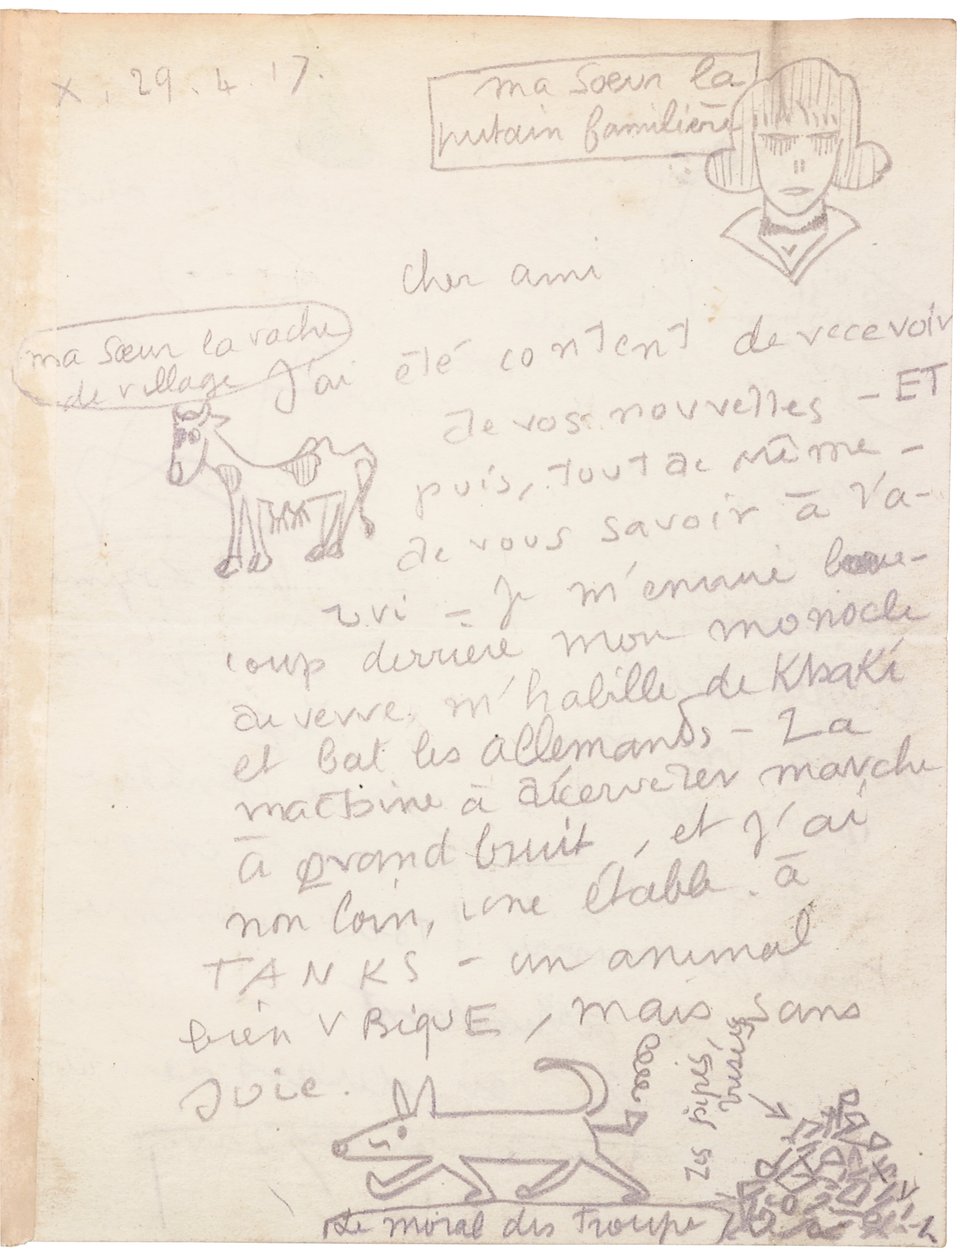 X. 29.4.17.
ma Sœur la
putain familière
cher ami
ma Sœur la vache
de village
J'ai été content de recevoir
de vos nouvelles – ET
puis, tout de même –
de vous savoir à l'a-
bri – Je m'ennuie beau-
coup derrière mon monocle
de verre, m'habille de Khaki
et bat les allemands – La
machine à décerveler marche
à grand bruit, et j'ai
non loin, une étable à
TANKS – un animal
bien UBiquE, mais sans
joie.
Les pipes, brisées
Le moral des Troupe